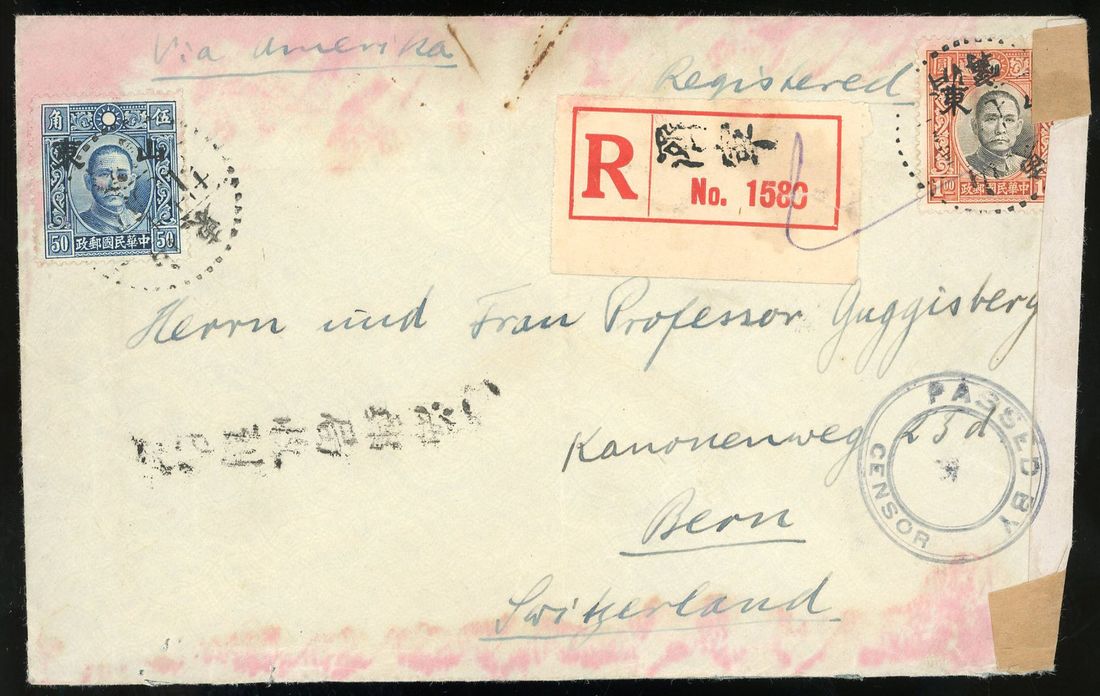 Via Amerika
Registered
角 伍
山東
50 中華民國郵政 50
圓
山東
1.00 中華民國郵政 1
R
No. 1580
Herrn und Frau Professor Guggisberg
Kanonenweg 23d
Bern
Switzerland
PASSED BY
CENSOR